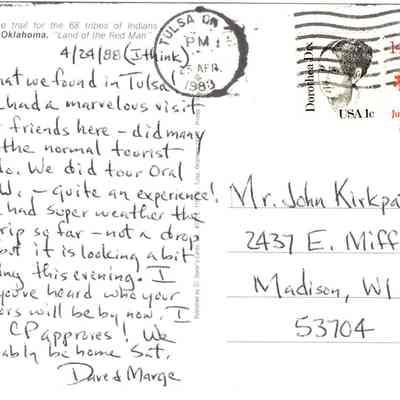 e trail for the 68 tribes of Indians
Oklahoma. "Land of the Red Man"
4/24/88 (I think)
hat we found in Tulsa!
had a marvelous visit
friends here - did many
the normal tourist
do. We did tour Oral
U. - quite an experience!
had super weather the
rip so far - not a drop
but it is looking a bit
ing this evening. I
you've heard who your
ors will be by now. I
CP approves! We
ably be home Sat.
Dave & Marge
TULSA OK
PM
25 APR
1988
Dorothea Dix
USA 1c
Mr. John Kirkpa
2437 E. Miff
Madison, WI
53704